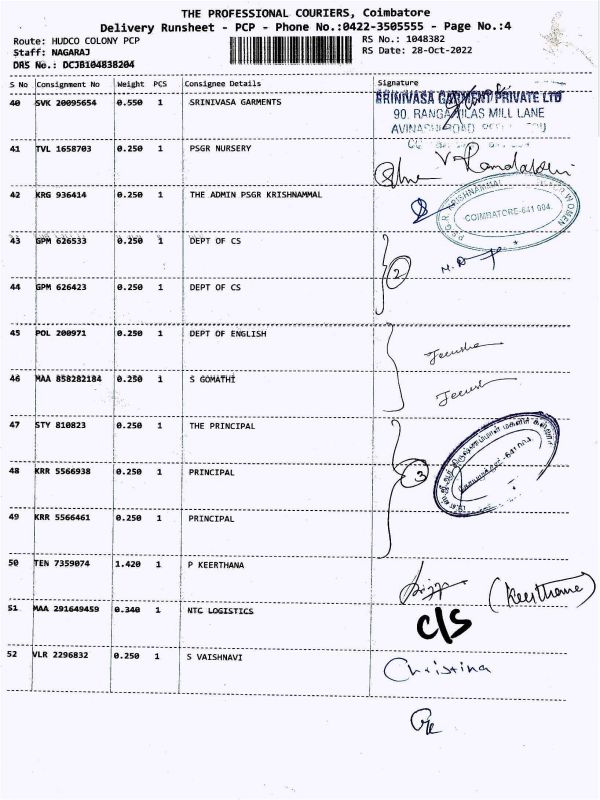 THE PROFESSIONAL COURIERS, Coimbatore
Delivery Runsheet - PCP - Phone No.:0422-3505555 - Page No.:4
Route: HUDCO COLONY PCP RS No.: 1048382
Staff: NAGARAJ RS Date: 28-Oct-2022
DRS No.: DCJB104838204
S No Consignment No Weight PCS Consignee Details Signature
40 SVK 20095654 0.550 1 SRINIVASA GARMENTS
SRINIVASA GARMENT PRIVATE LTD
90, RANGA VILAS MILL LANE
AVINASHI ROAD
41 TVL 1658703 0.250 1 PSGR NURSERY
42 KRG 936414 0.250 1 THE ADMIN PSGR KRISHNAMMAL
P.S.G.R. KRISHNAMMAL WOMEN
COIMBATORE-641 004.
43 GPM 626533 0.250 1 DEPT OF CS
2
44 GPM 626423 0.250 1 DEPT OF CS
45 POL 200971 0.250 1 DEPT OF ENGLISH
46 MAA 858282184 0.250 1 S GOMATHI
47 STY 810823 0.250 1 THE PRINCIPAL
48 KRR 5566938 0.250 1 PRINCIPAL
3
49 KRR 5566461 0.250 1 PRINCIPAL
50 TEN 7359074 1.420 1 P KEERTHANA
(Keerthana)
51 MAA 291649459 0.340 1 NTC LOGISTICS
C/S
52 VLR 2296832 0.250 1 S VAISHNAVI
Christina